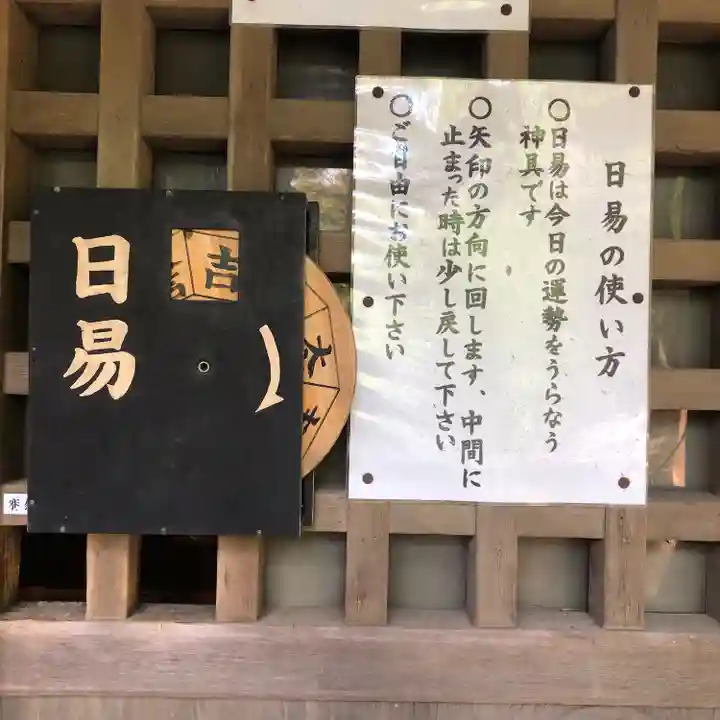 日易の使い方
○日易は今日の運勢をうらなう
神具です
○矢印の方向に回します、中間に
止まった時は少し戻して下さい
○ご自由にお使い下さい
日易
吉